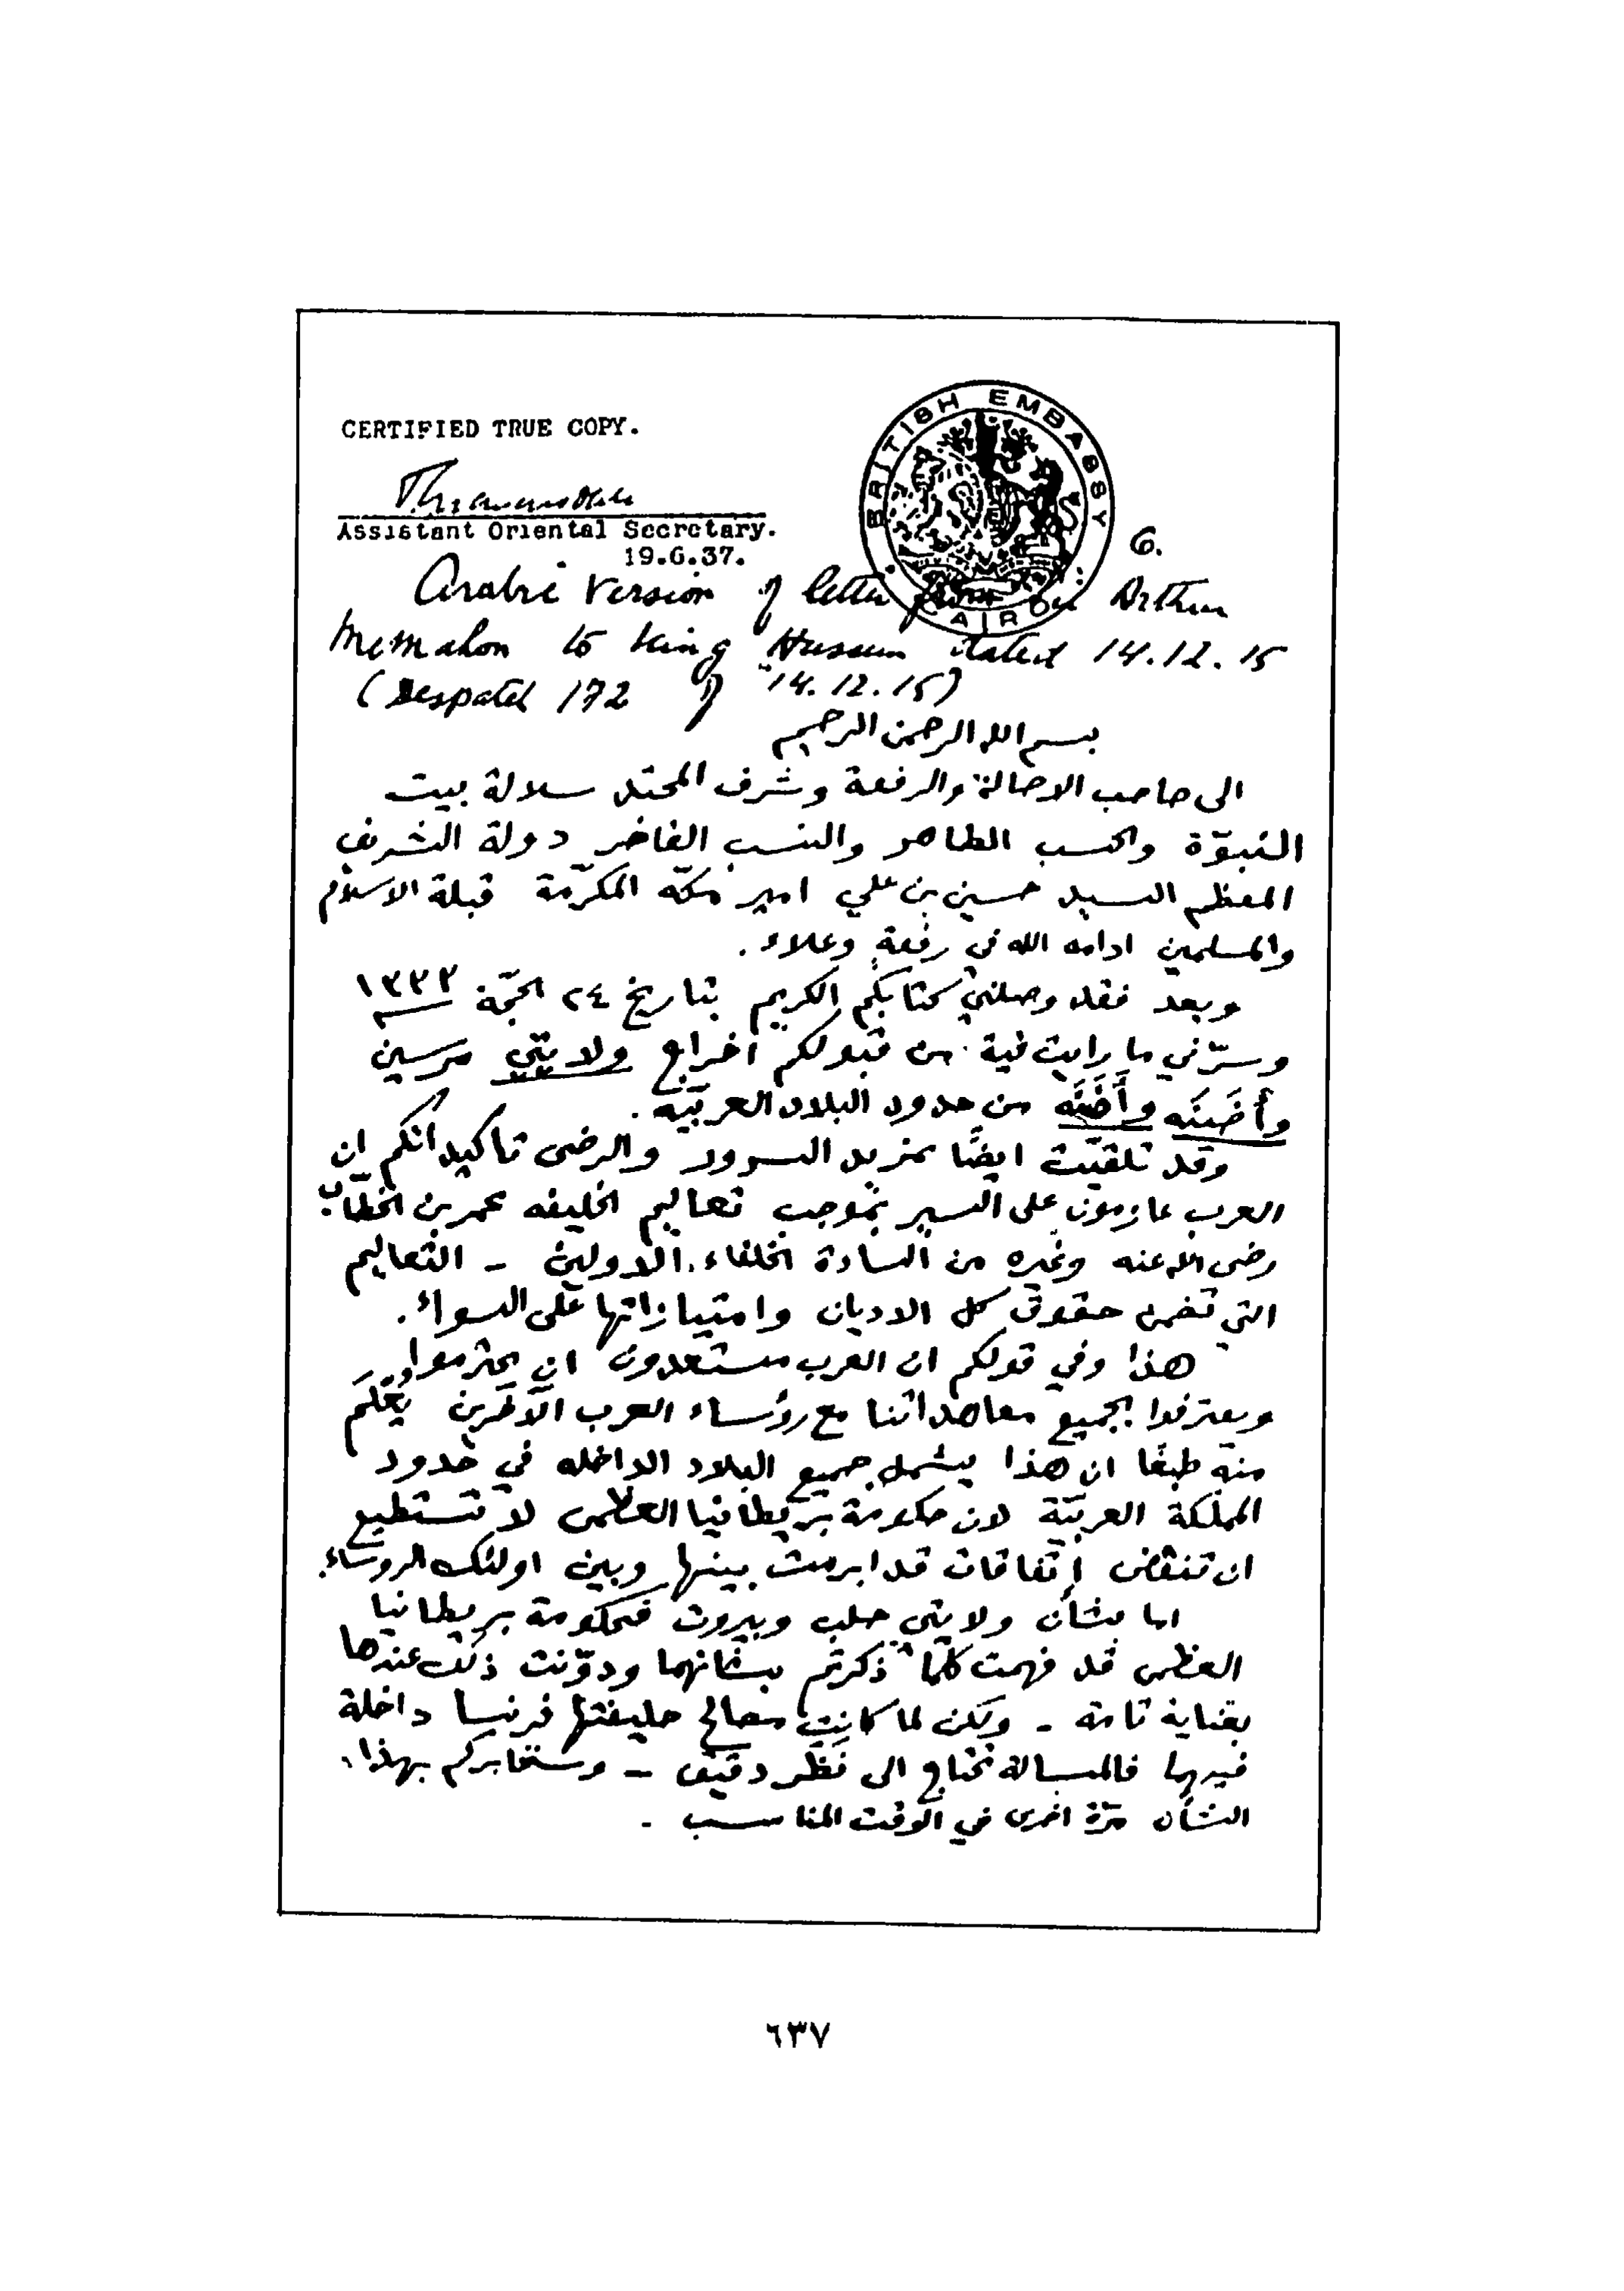 CERTIFIED TRUE COPY.
BRITISH EMBASSY
Assistant Oriental Secretary.
19.6.37.
6.
Arabic version of letter from Sir Arthur
McMahon to King Hussein dated 14.12.15
(Despatch 172 of 14.12.15)
بسم الله الرحمن الرحيم
الى صاحب الاصالة والرفعة وشرف المحتد سلالة بيت
النبوّة والحسب الطاهر والنسب الفاخر دولة الشريف
المعظم السيد حسين بن علي امير مكّه المكرّمة قبلة الاسلام
والمسلمين ادامه الله في رفعةٍ وعلاء.
وبعد فقد وصلني كتابكم الكريم بتاريخ ٢٤ الحجّة ١٣٣٣
وسرّني ما رايت فية من قبولكم اخراج ولايتي مرسين
وأضَنَه وأَضَنَه من حدود البلاد العربيّه.
وقد تلقيّت ايضًا بمزيد السرور والرضى تاكيداتكم ان
العرب عازمون على السير بموجب تعاليم الخليفه عمر بن الخطّاب
رضى الله عنه وغيره من السادة الخلفاء الاولين - التعاليم
التي تضمن حقوق كل الاديان وامتيازاتها على السواء.
هذا وفي قولكم ان العرب مستعدون ان يحترموا
ويعترفوا بجميع معاهداتنا مع رؤساء العرب الآخرين يُعْلَم
منه طبعًا ان هذا يشمل جميع البلاد الداخله في حدود
المملكة العربيّة لان حكومة بريطانيا العظمى لا تستطيع
ان تنقض إتفاقات قد ابرمت بينها وبين اولئك الروساء.
اما بشأن ولايتي حلب وبيروت فحكومة بريطانيا
العظمى قد فهمت كلما ذكرتم بشانهما ودوّنت ذلك عندها
بعناية تامه - ولكن لما كانت مصالح حليفتها فرنسا داخلة
فيهما فالمسالة تحتاج الى نظر دقيق - وسنخابركم بهذا
الشأن مرّة اخرى في الوقت المناسب .
٦٣٧